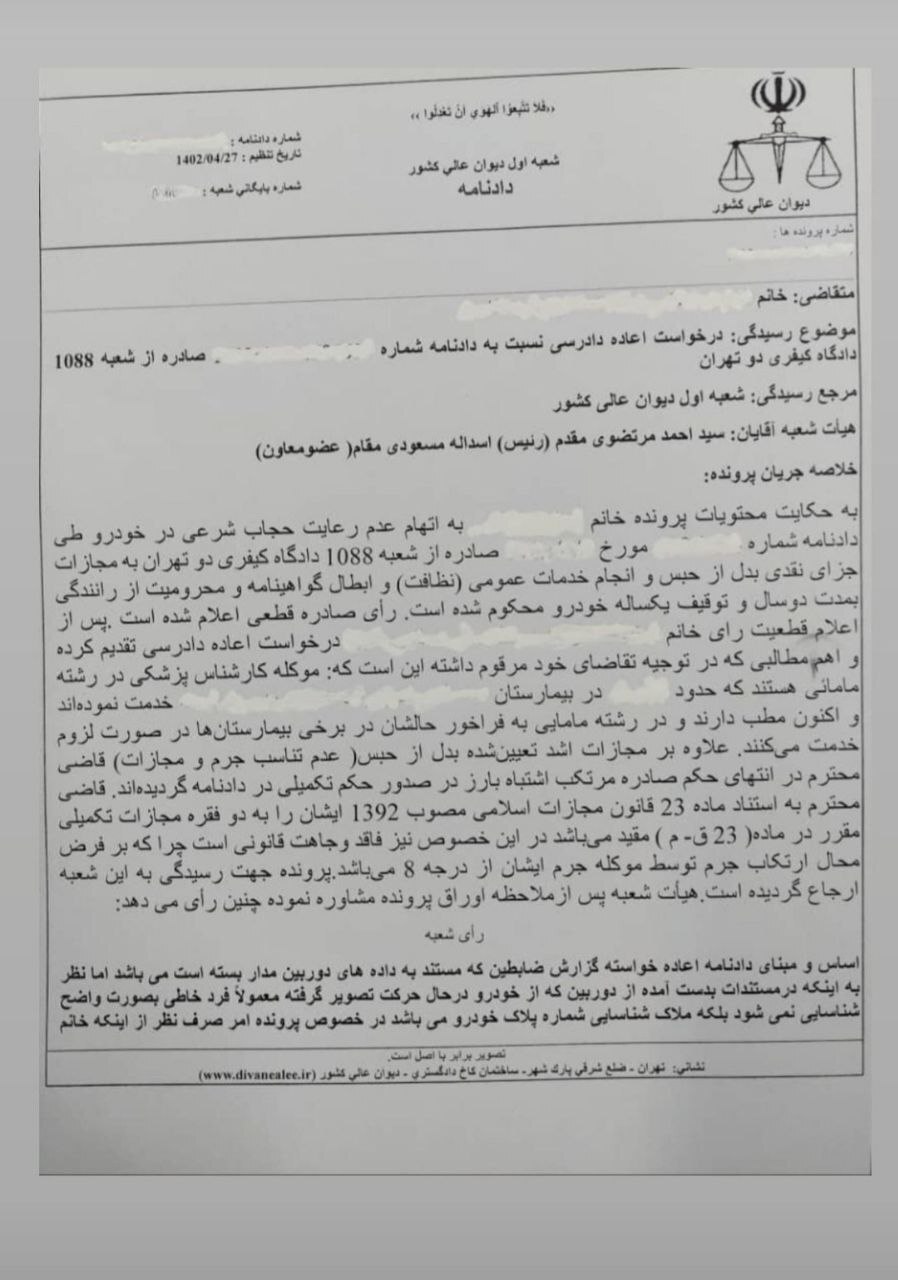 «فَلا تَتَّبِعُوا الهَوي اَنْ تَعْدِلُوا»
شعبه اول دیوان عالي کشور
دادنامه
دیوان عالي کشور
شماره دادنامه :
تاریخ تنظیم : 1402/04/27
شماره بایگاني شعبه :
شماره پرونده ها :
متقاضی: خانم
موضوع رسیدگی: درخواست اعاده دادرسی نسبت به دادنامه شماره صادره از شعبه 1088
دادگاه کیفری دو تهران
مرجع رسیدگی: شعبه اول دیوان عالی کشور
هیأت شعبه آقایان: سید احمد مرتضوی مقدم (رئیس) اسداله مسعودی مقام( عضومعاون)
خلاصه جریان پرونده:
به حکایت محتویات پرونده خانم به اتهام عدم رعایت حجاب شرعی در خودرو طی
دادنامه شماره مورخ صادره از شعبه 1088 دادگاه کیفری دو تهران به مجازات
جزای نقدی بدل از حبس و انجام خدمات عمومی (نظافت) و ابطال گواهینامه و محرومیت از رانندگی
بمدت دوسال و توقیف یکساله خودرو محکوم شده است. رأی صادره قطعی اعلام شده است .پس از
اعلام قطعیت رای خانم درخواست اعاده دادرسی تقدیم کرده
و اهم مطالبی که در توجیه تقاضای خود مرقوم داشته این است که: موکله کارشناس پزشکی در رشته
مامائی هستند که حدود در بیمارستان خدمت نموده‌اند
و اکنون مطب دارند و در رشته مامایی به فراخور حالشان در برخی بیمارستان‌ها در صورت لزوم
خدمت می‌کنند. علاوه بر مجازات اشد تعیین‌شده بدل از حبس( عدم تناسب جرم و مجازات) قاضی
محترم در انتهای حکم صادره مرتکب اشتباه بارز در صدور حکم تکمیلی در دادنامه گردیده‌اند. قاضی
محترم به استناد ماده 23 قانون مجازات اسلامی مصوب 1392 ایشان را به دو فقره مجازات تکمیلی
مقرر در ماده( 23 ق- م ) مقید می‌باشد در این خصوص نیز فاقد وجاهت قانونی است چرا که بر فرض
محال ارتکاب جرم توسط موکله جرم ایشان از درجه 8 می‌باشد.پرونده جهت رسیدگی به این شعبه
ارجاع گردیده است.هیأت شعبه پس ازملاحظه اوراق پرونده مشاوره نموده چنین رأی می دهد:
رأی شعبه
اساس و مبنای دادنامه اعاده خواسته گزارش ضابطین که مستند به داده های دوربین مدار بسته است می باشد اما نظر
به اینکه درمستندات بدست آمده از دوربین که از خودرو درحال حرکت تصویر گرفته معمولاً فرد خاطی بصورت واضح
شناسایی نمی شود بلکه ملاک شناسایی شماره پلاک خودرو می باشد در خصوص پرونده امر صرف نظر از اینکه خانم
تصویر برابر با اصل است.
نشاني: تهران - ضلع شرقي پارك شهر- ساختمان كاخ دادگستري - دیوان عالي کشور (www.divanealee.ir)